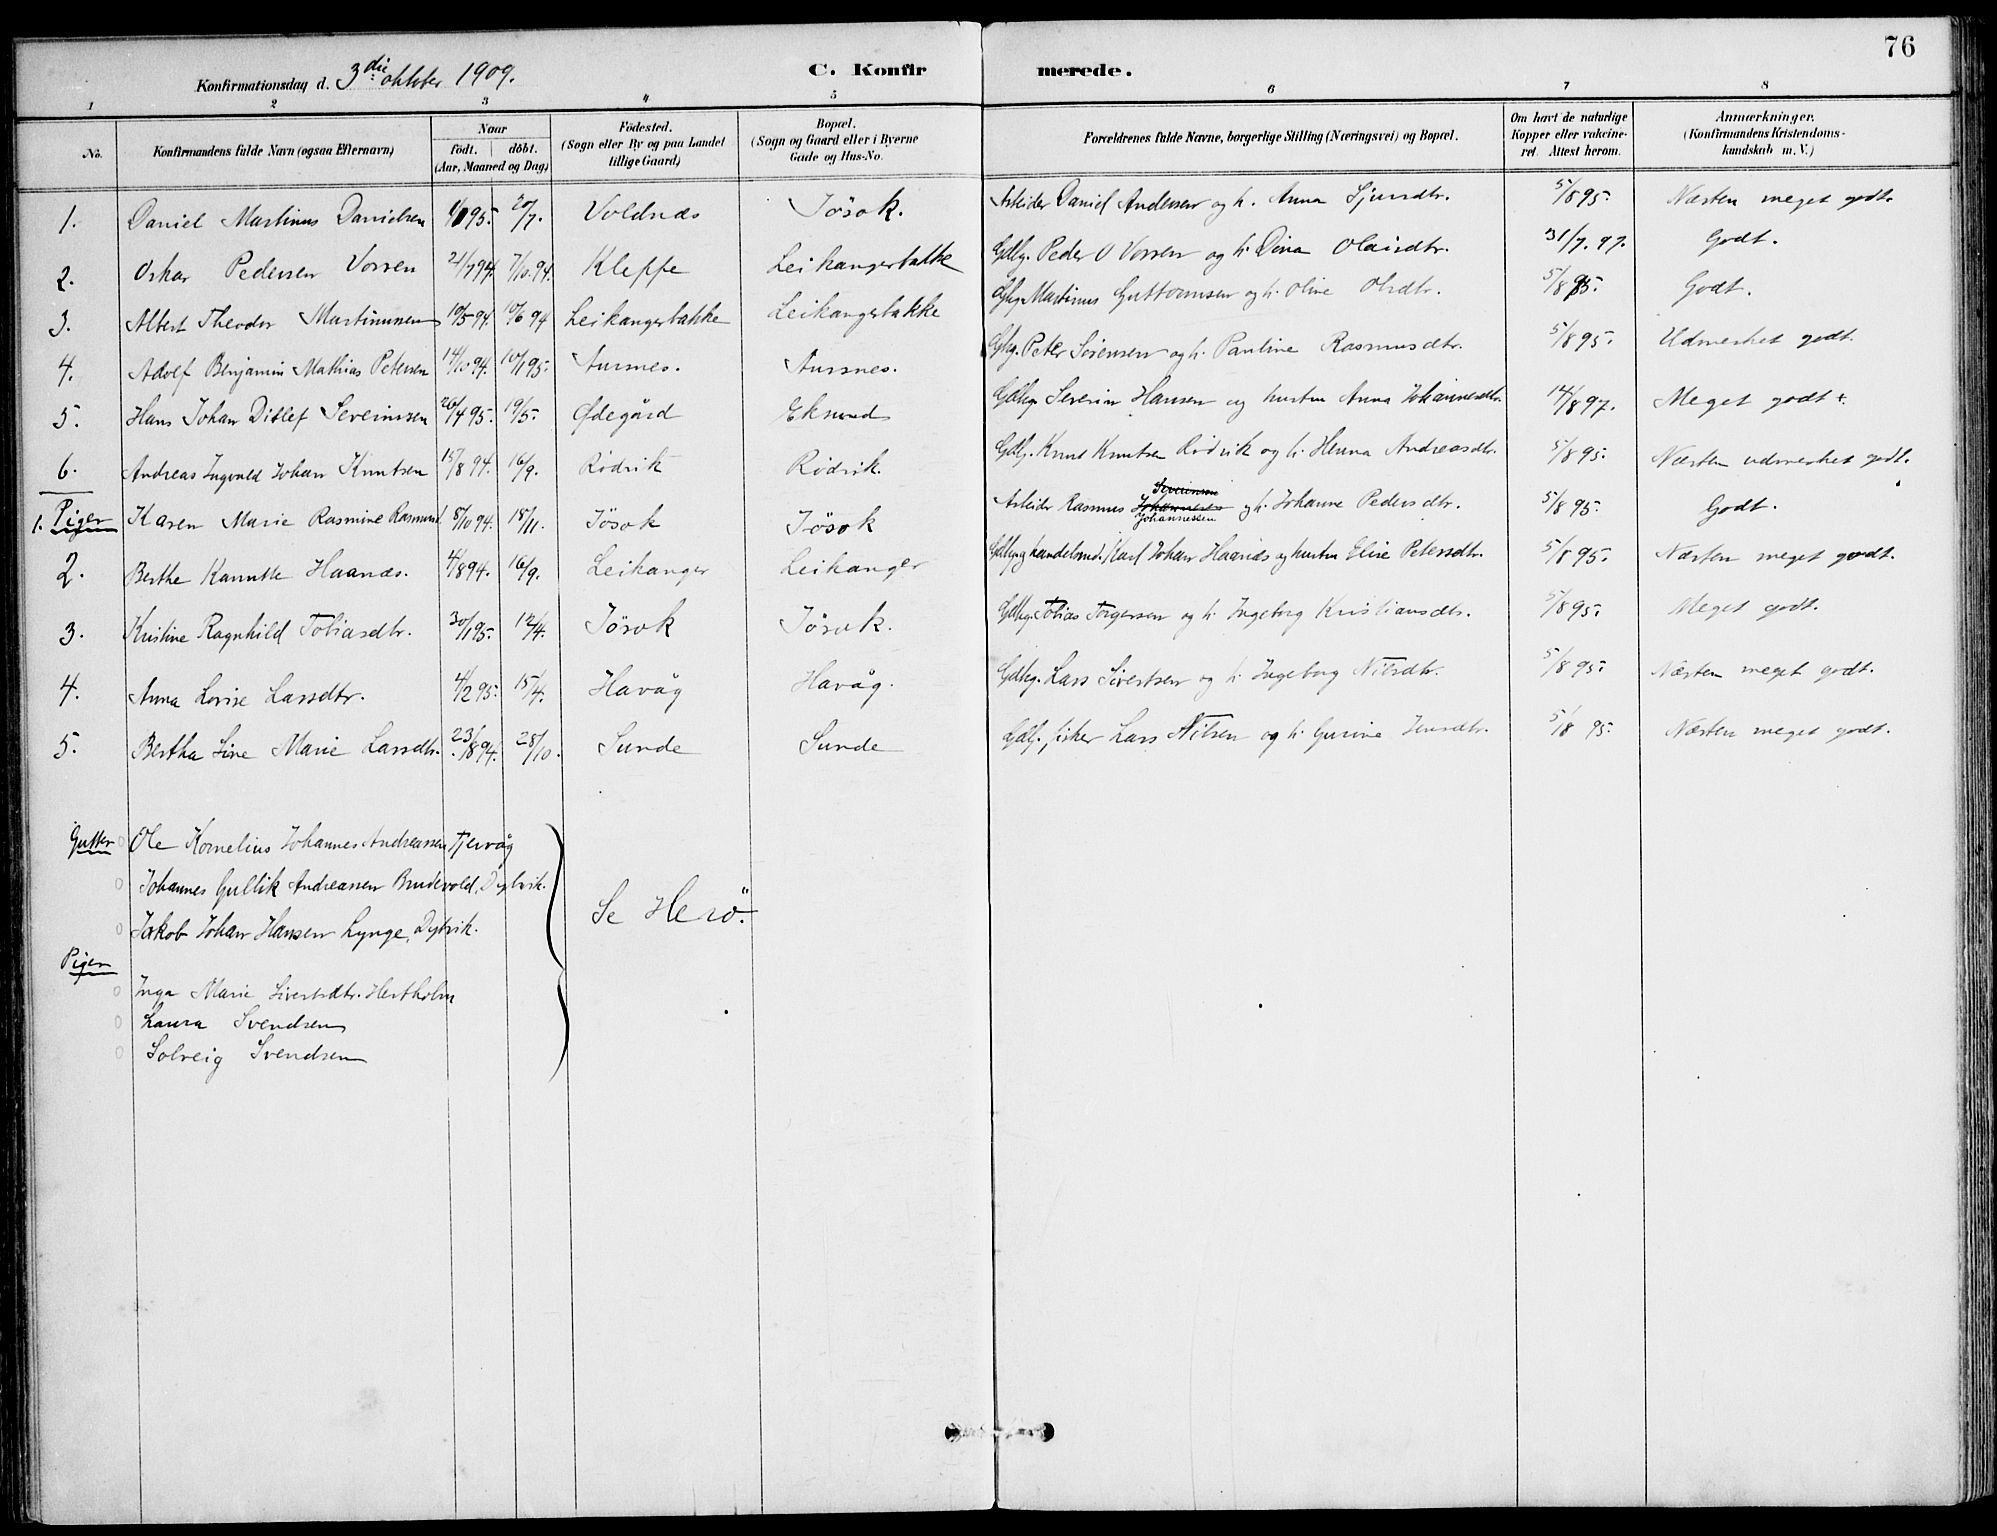 76
Konfirmationsdag d. 3die oktober 1909. C. Konfirmerede.
1 2 3 4 5 6 7 8
No. Konfirmandens fulde Navn (ogsaa Efternavn) Naar födt. döbt. (Aar, Maaned og Dag) Födested. (Sogn eller By og paa Landet tillige Gaard) Bopæl. (Sogn og Gaard eller i Byerne Gade og Hus-No. Forældrenes fulde Navne, borgerlige Stilling (Næringsvei) og Bopæl. Om havt de naturlige Kopper eller vakcineret. Attest herom. Anmærkninger. (Konfirmandens Kristendomskundskab m. V.)
1. Daniel Martinus Danielsen 20/7. Voldnæs Jösok. Arbeider Daniel Andersen og h. Anna Sjursdtr. 5/8 95. Næsten meget godt.
2. Oskar Pedersen Vorren 21/7 94. 7/10. 94. Kleppe Leikangerbakke Gdbg. Peder O Vorren og h. Dina Olaisdtr. 31/7. 97. Godt.
3. Albert Theodor Martinussen 10/5 94. 10/6 94 Leikangerbakke Leikangerbakke Gbg. Martinus Guttormsen og h. Oline Olsdtr. 5/8 95. Godt.
4. Adolf Benjamin Mathias Petersen 14/10 94. 10/1 95. Aursnes. Aursnes. Gbg. Peter Sörensen og h. Pauline Rasmusdtr. 5/8 95. Udmerket godt.
5. Hans Johan Ditlef Severinsen 26/4 95. 19/5. Ødegård Eksund Gdbg. Severin Hansen og hustru Anna Johannesdtr. 14/8 97. Meget godt +.
6. Andreas Ingvald Johan Knutsen 15/8 94. 16/9. Rödvik Rödvik. Gdbg. Knut Knutsen Rödvik og h. Henna Andreasdtr. 5/8 95. Næsten udmerket godt.
1. Piger Karen Marie Rasmine Rasmusd. 8/10 94. 18/11. Jösok Jösok Arbeider Rasmus Severinsen Johannessen og h. Johanne Pedersdtr. 5/8 95. Godt.
2. Berthe Kamitte Haanæs. 4/8 94. 16/9. Leikanger Leikanger Gdbg. og handelsmd. Karl Johan Haanæs og hustru Elise Petersdtr. 5/8 95. Næsten meget godt.
3. Kristine Ragnhild Tobiasdtr. 30/1 95. 12/4. Jösok Jösok. Gdbg. Tobias Torgersen og h. Ingeborg Kristiansdtr. 5/8 95. Meget godt.
4. Anna Lovise Larsdtr. 4/2 95. 15/4. Havåg Havåg. Gdbg. Lars Sivertsen og h. Ingeborg Nilsdtr. 5/8 95. Næsten meget godt.
5. Bertha Line Marie Larsdtr. 23/8 94. 28/10. Sunde Sunde Gdbg. fisker Lars Nilsen og h. Gurine Jensdtr. 5/8 95. Næsten meget godt.
Gutter Ole Kornelius Johannes Andreassen Tjervåg
Johannes Gullik Andreassen Brudevold, Dybvik.
Se Herö.
Jakob Johan Hansen Lynge, Dybvik.
Piger
Inga Marie Sivertsdtr. Hestholm
Laura Svendsen
Solveig Svendsen